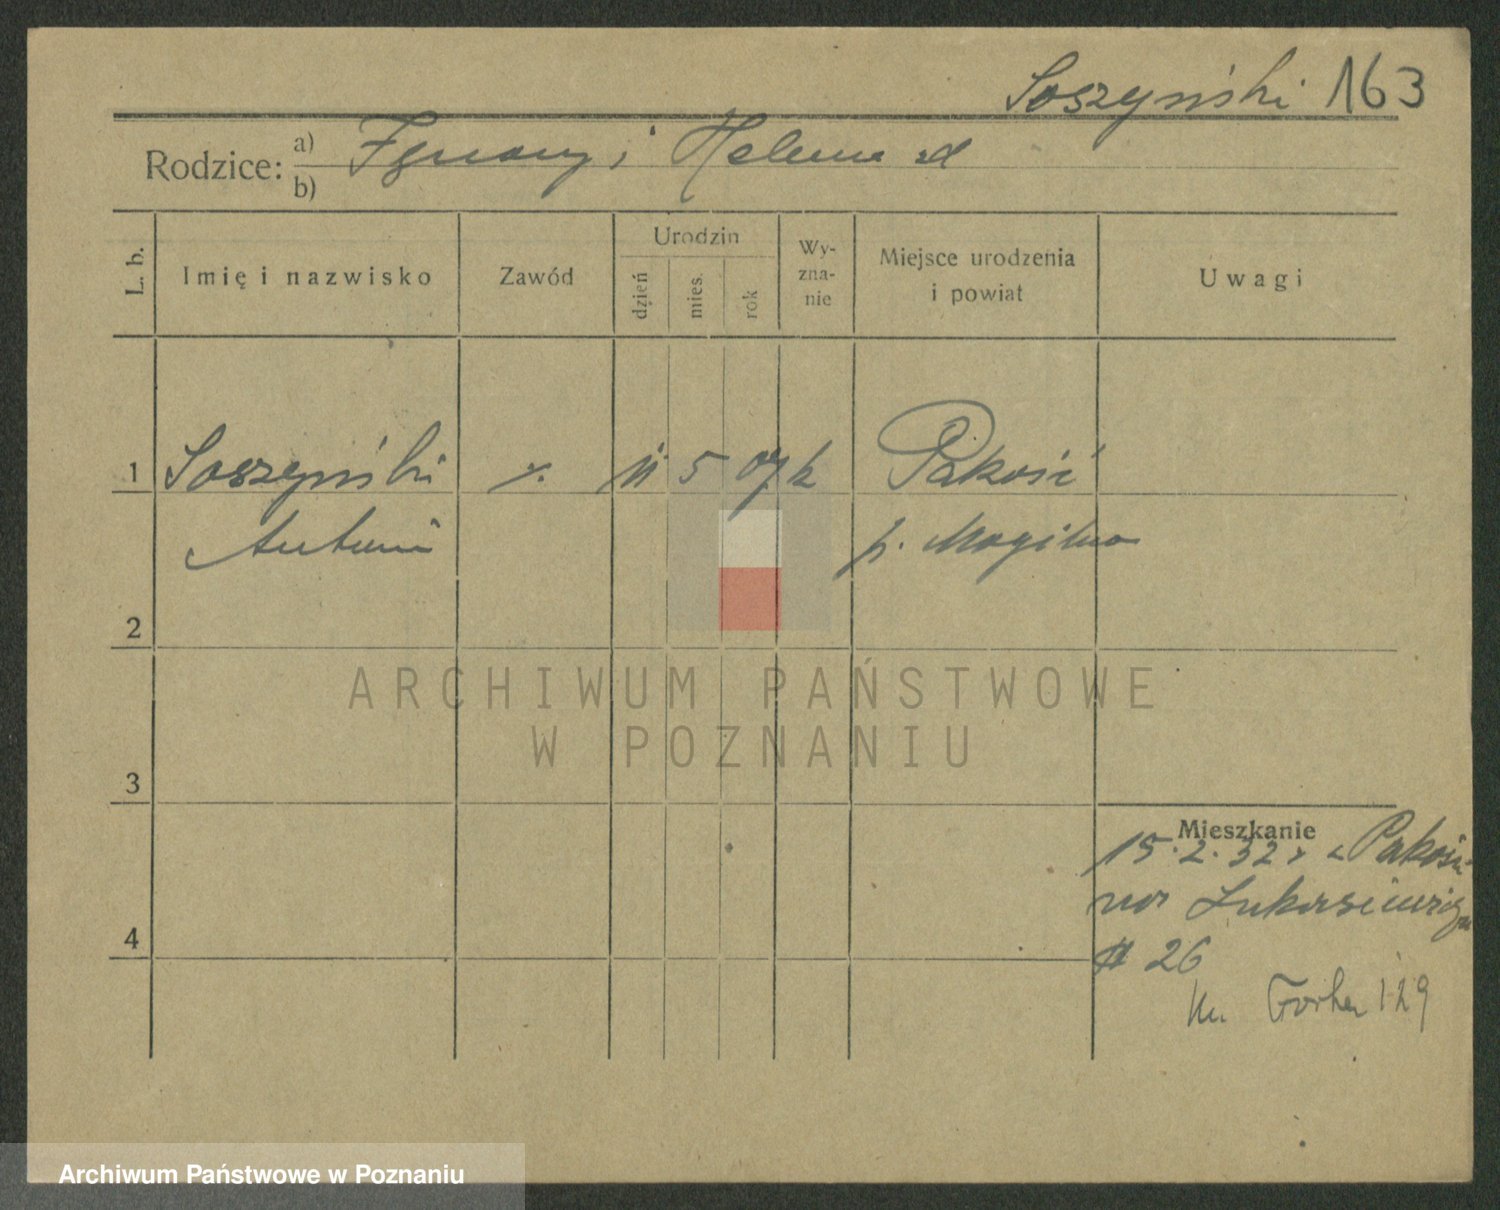 Soszyński 163
Rodzice: a) Ignacy i Helena
b)
L. b.
Imię i nazwisko
Zawód
Urodzin
dzień
mies.
rok
Wy-
zna-
nie
Miejsce urodzenia
i powiat
Uwagi
1 Soszyński 11 5 07 k Pakość
Antoni p. Mogilno
2
ARCHIWUM PAŃSTWOWE
W POZNANIU
3
Mieszkanie
15.2.32 z Pakości
na Łukasiewicza
26
Górka 129
4
Archiwum Państwowe w Poznaniu